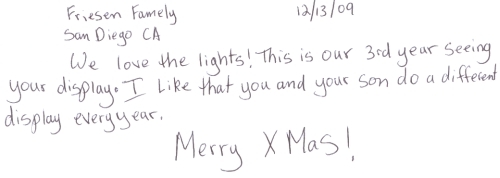 Friesen Famely 12/13/09
San Diego CA
We love the lights! This is our 3rd year seeing
your display. I Like that you and your son do a different
display everyyear.
Merry X Mas!